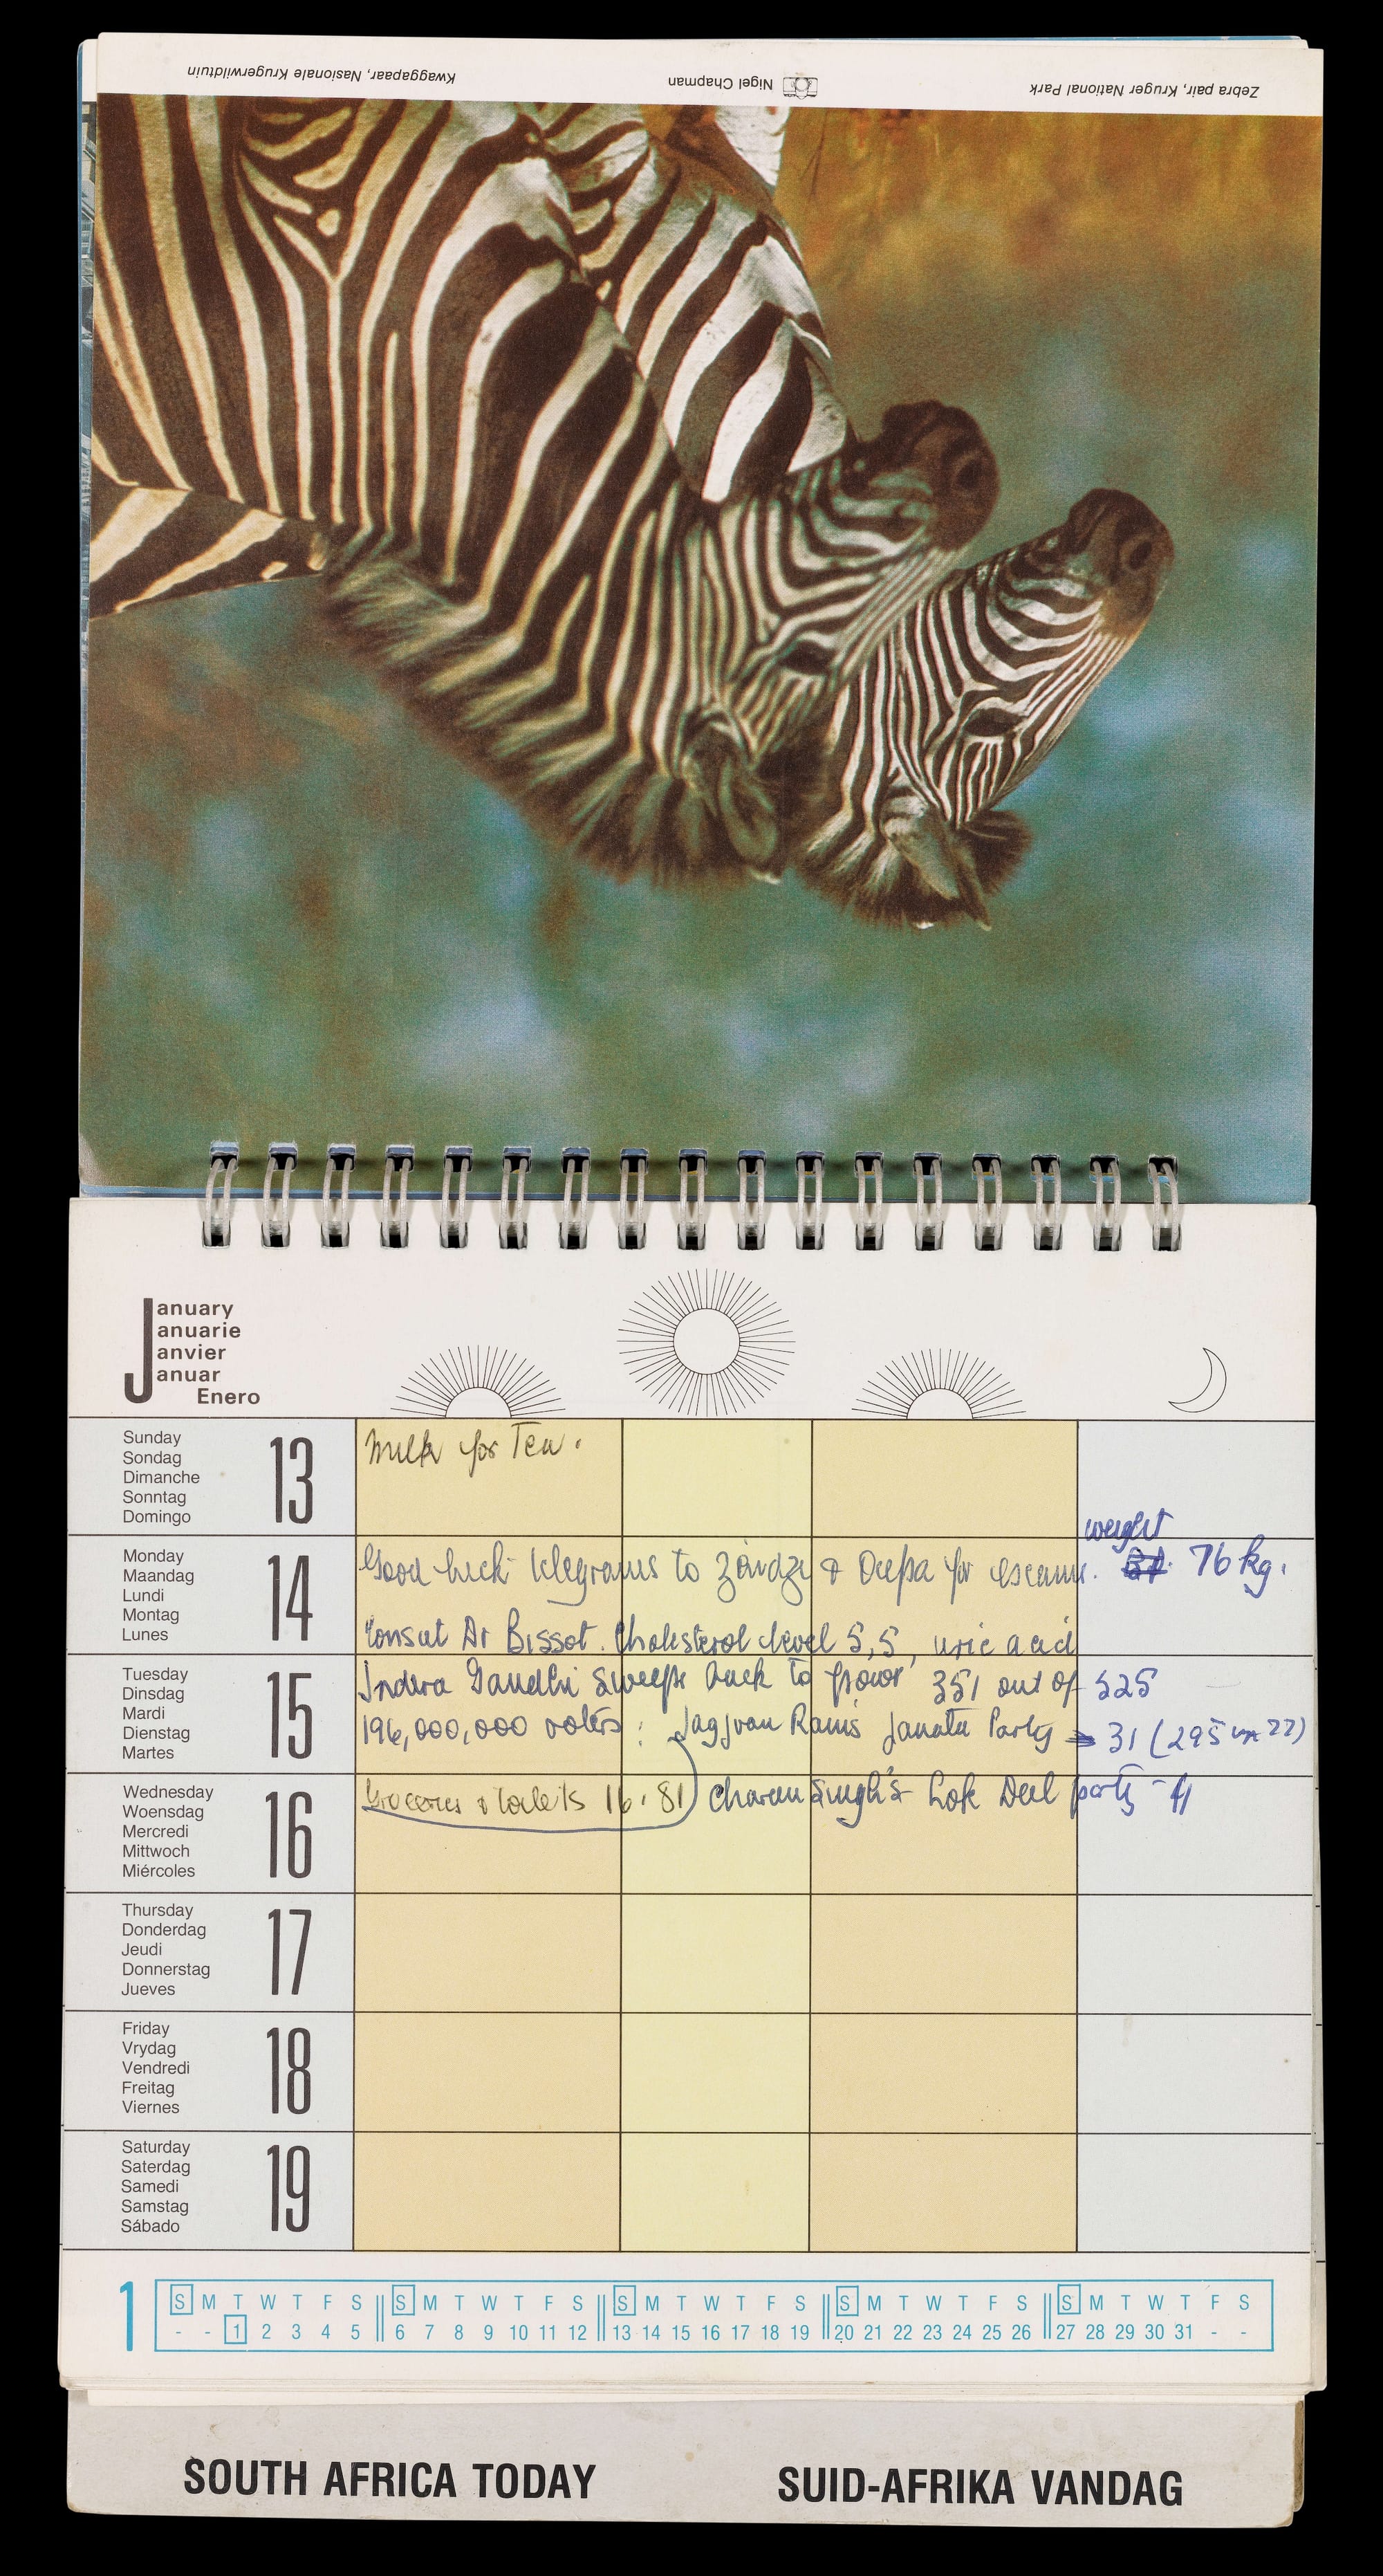 Zebra pair, Kruger National Park
Nigel Chapman
Kwaggapaar, Nasionale Krugerwildtuin
January
Januarie
Janvier
Januar
Enero
Sunday
Sondag
Dimanche
Sonntag
Domingo
13
Milk for Tea.
Monday
Maandag
Lundi
Montag
Lunes
14
Good luck telegrams to Zindzi & Oupa for exams.
weight
76 kg.
Consult Dr Bissot. Cholesterol level 5,5, uric acid
Tuesday
Dinsdag
Mardi
Dienstag
Martes
15
Indira Gandhi sweeps back to power 351 out of 525
196,000,000 voters: Jagjivan Ram's Janata Party 31 (295 in 77)
Wednesday
Woensdag
Mercredi
Mittwoch
Miércoles
16
Groceries & toilets 16.81
Charan Singh's Lok Dal party - 41
Thursday
Donderdag
Jeudi
Donnerstag
Jueves
17
Friday
Vrydag
Vendredi
Freitag
Viernes
18
Saturday
Saterdag
Samedi
Samstag
Sábado
19
1
S M T W T F S S M T W T F S S M T W T F S S M T W T F S S M T W T F S
- - 1 2 3 4 5 6 7 8 9 10 11 12 13 14 15 16 17 18 19 20 21 22 23 24 25 26 27 28 29 30 31 - -
SOUTH AFRICA TODAY
SUID-AFRIKA VANDAG